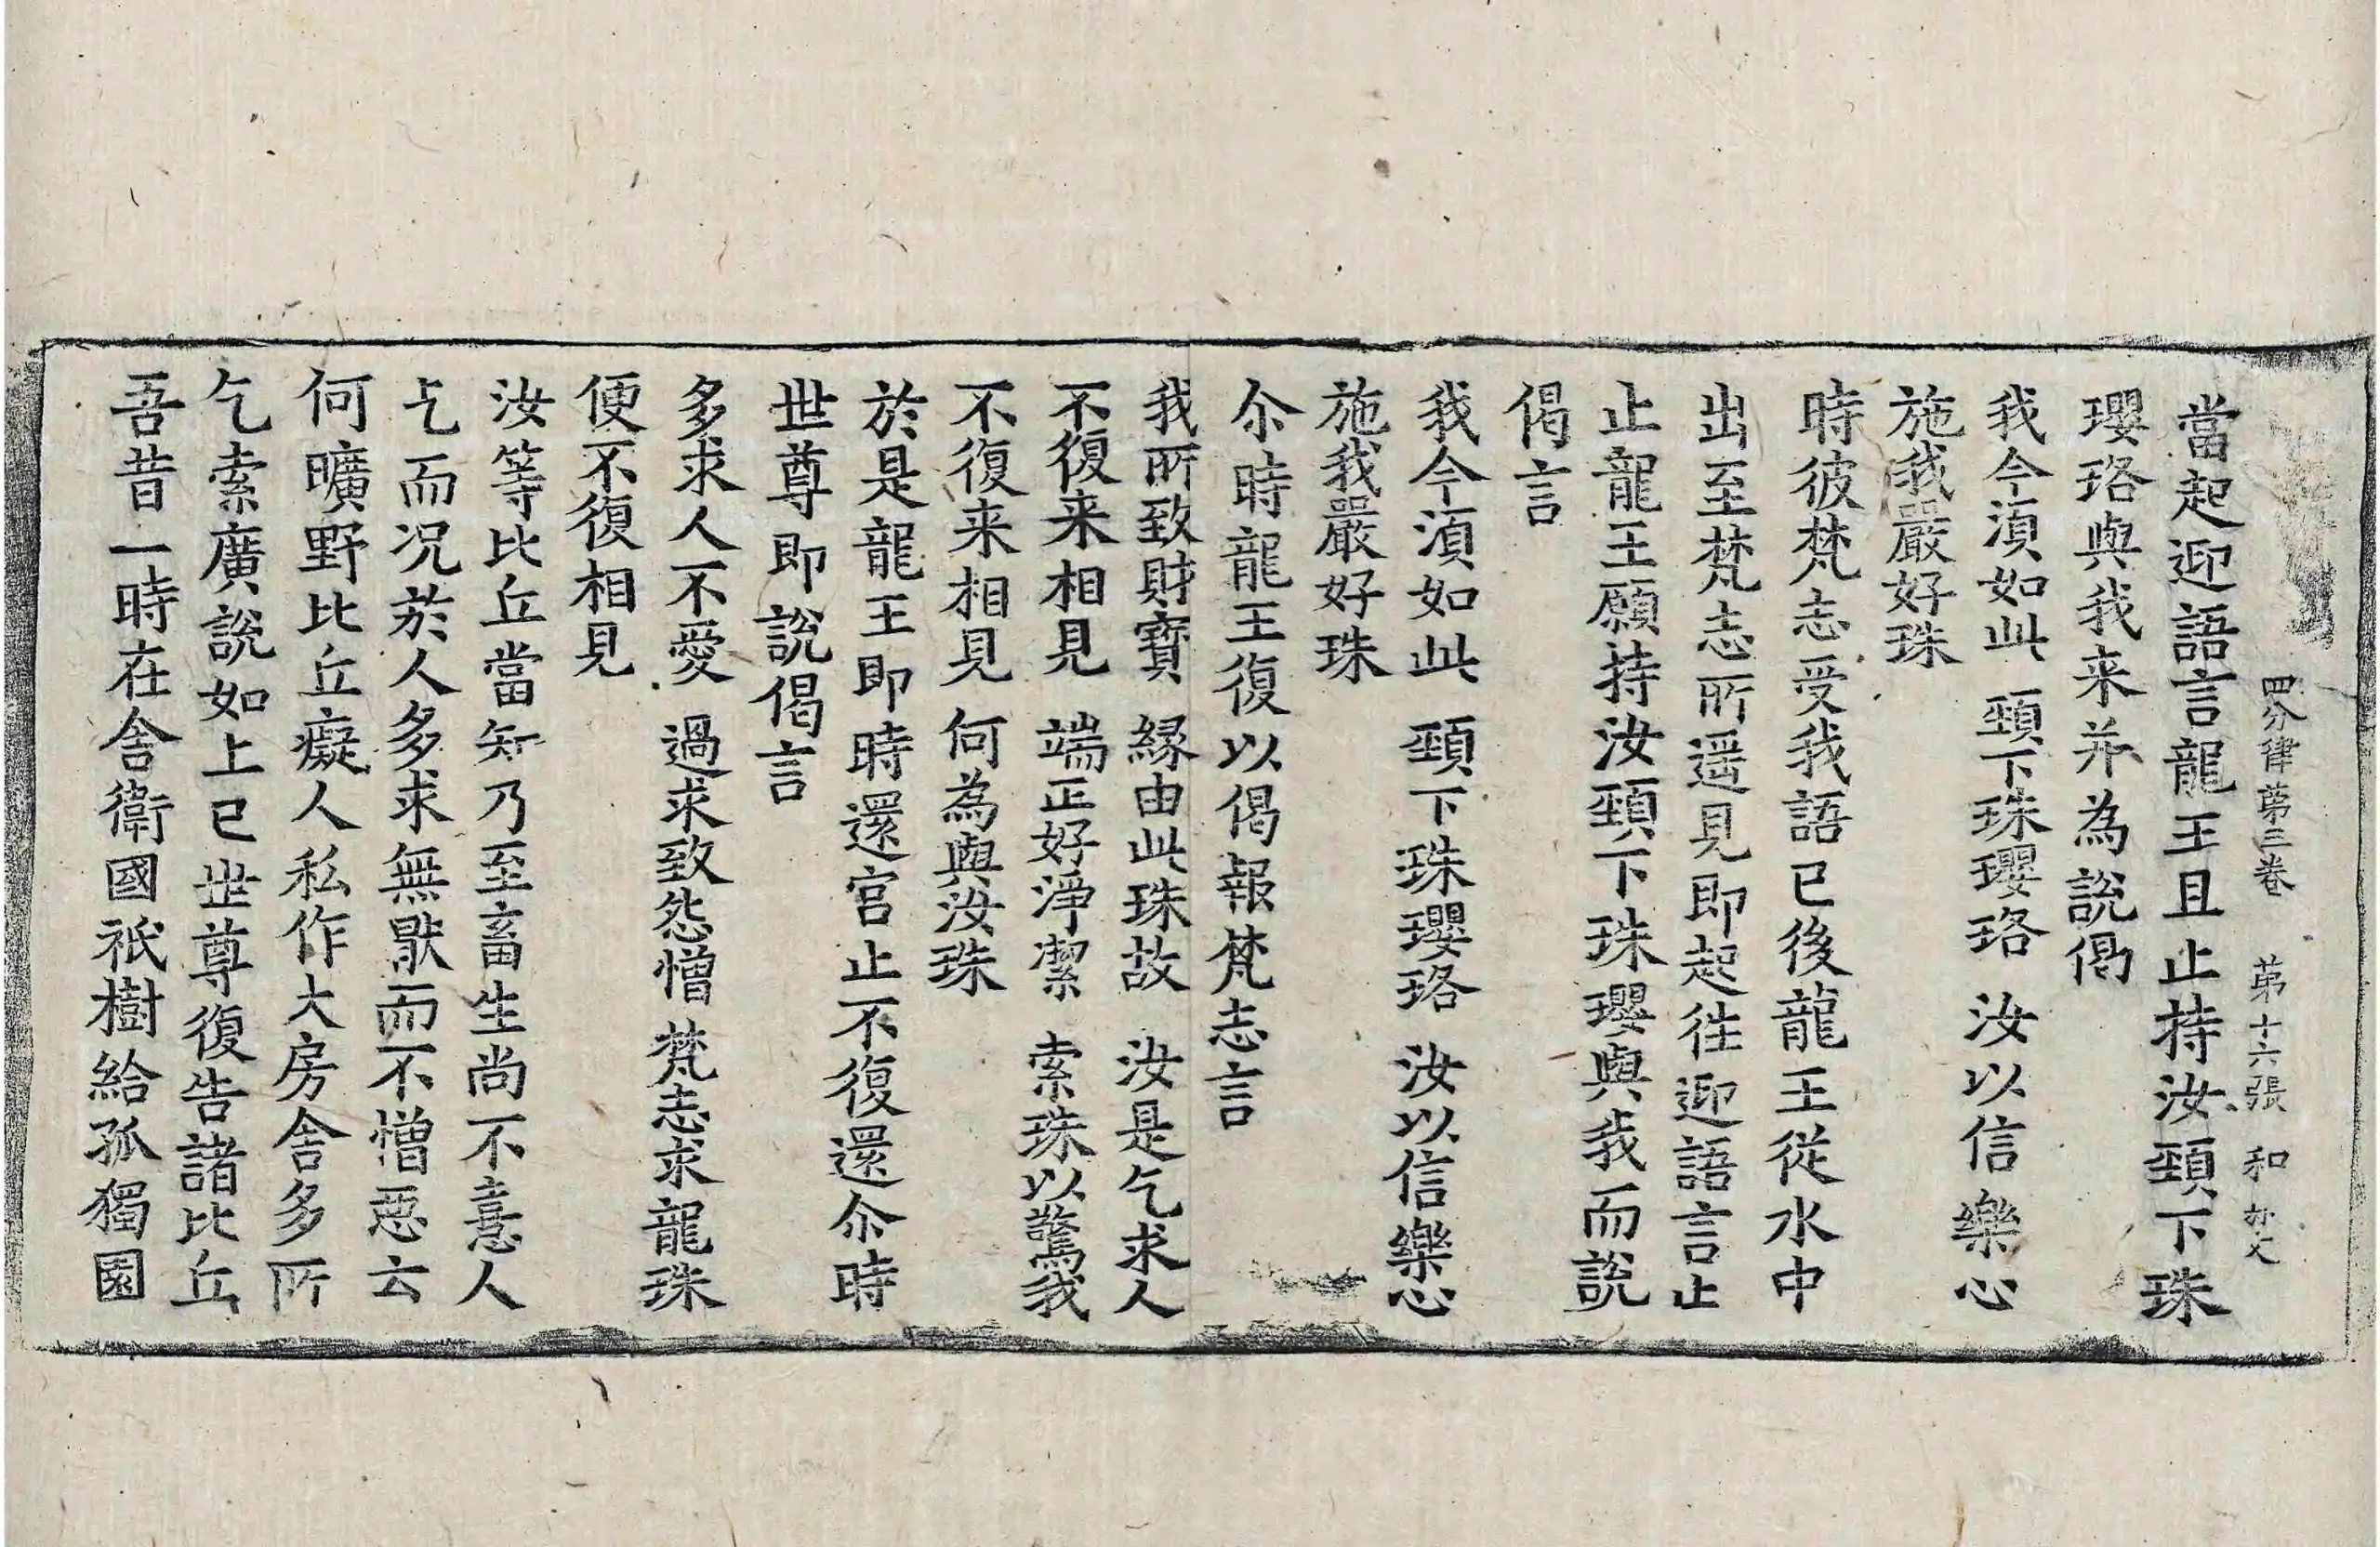 四分律第三卷 第十六張 和
當起迎語言龍王且止持汝頸下珠
瓔珞與我来并為說偈
我今湏如此 頸下珠瓔珞 汝以信樂心
施我嚴好珠
時彼梵志受我語已後龍王從水中
出至梵志所遥見即起往迎語言止
止龍王願持汝頸下珠瓔與我而說
偈言
我今湏如此 頸下珠瓔珞 汝以信樂心
施我嚴好珠
尒時龍王復以偈報梵志言
我所致財寶 緣由此珠故 汝是乞求人
不復来相見 端正好淨潔 索珠以驚我
不復来相見 何為與汝珠
於是龍王即時還宮止不復還尒時
世尊即說偈言
多求人不愛 過求致怨憎 梵志求龍珠
便不復相見
汝等比丘當知乃至畜生尚不憙人
乞而况於人多求無猒而不憎惡云
何曠野比丘癡人私作大房舍多所
乞索廣說如上已世尊復告諸比丘
吾昔一時在舍衛國祇樹給孤獨園